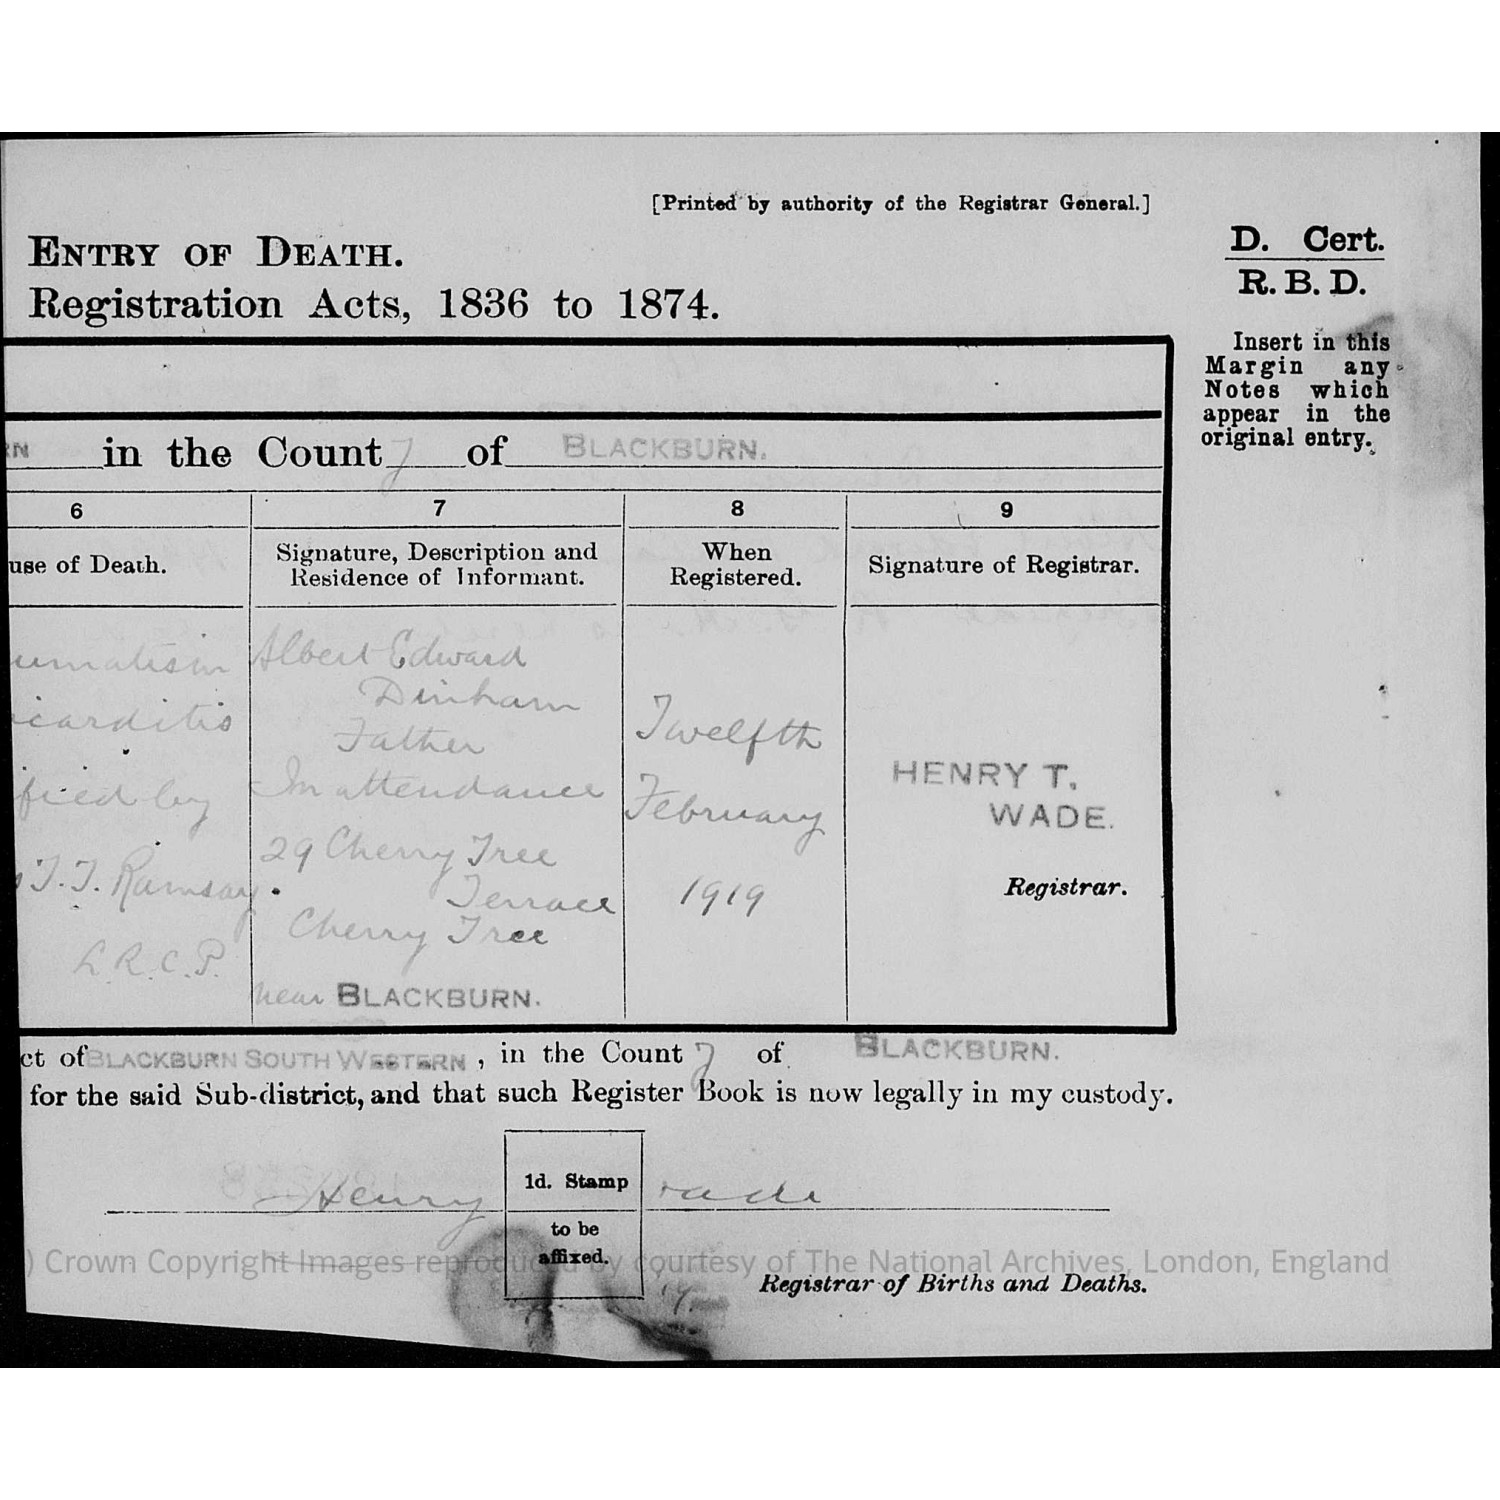 [Printed by authority of the Registrar General.]
ENTRY OF DEATH.
Registration Acts, 1836 to 1874.
D. Cert.
R. B. D.
Insert in this
Margin any
Notes which
appear in the
original entry.
RN in the County of BLACKBURN.
6 7 8 9
use of Death.
Signature, Description and
Residence of Informant.
When
Registered.
Signature of Registrar.
umatism
icarditis
fied by
T. T. Ramsay.
L.R.C.P.
Albert Edward
Dinham
Father
In attendance
29 Cherry Tree
Terrace
Cherry Tree
near BLACKBURN.
Twelfth
February
1919
HENRY T.
WADE.
Registrar.
ct of BLACKBURN SOUTH WESTERN, in the County of BLACKBURN.
for the said Sub-district, and that such Register Book is now legally in my custody.
Henry ade
1d. Stamp
to be
affixed.
) Crown Copyright Images reproduced by courtesy of The National Archives, London, England
Registrar of Births and Deaths.